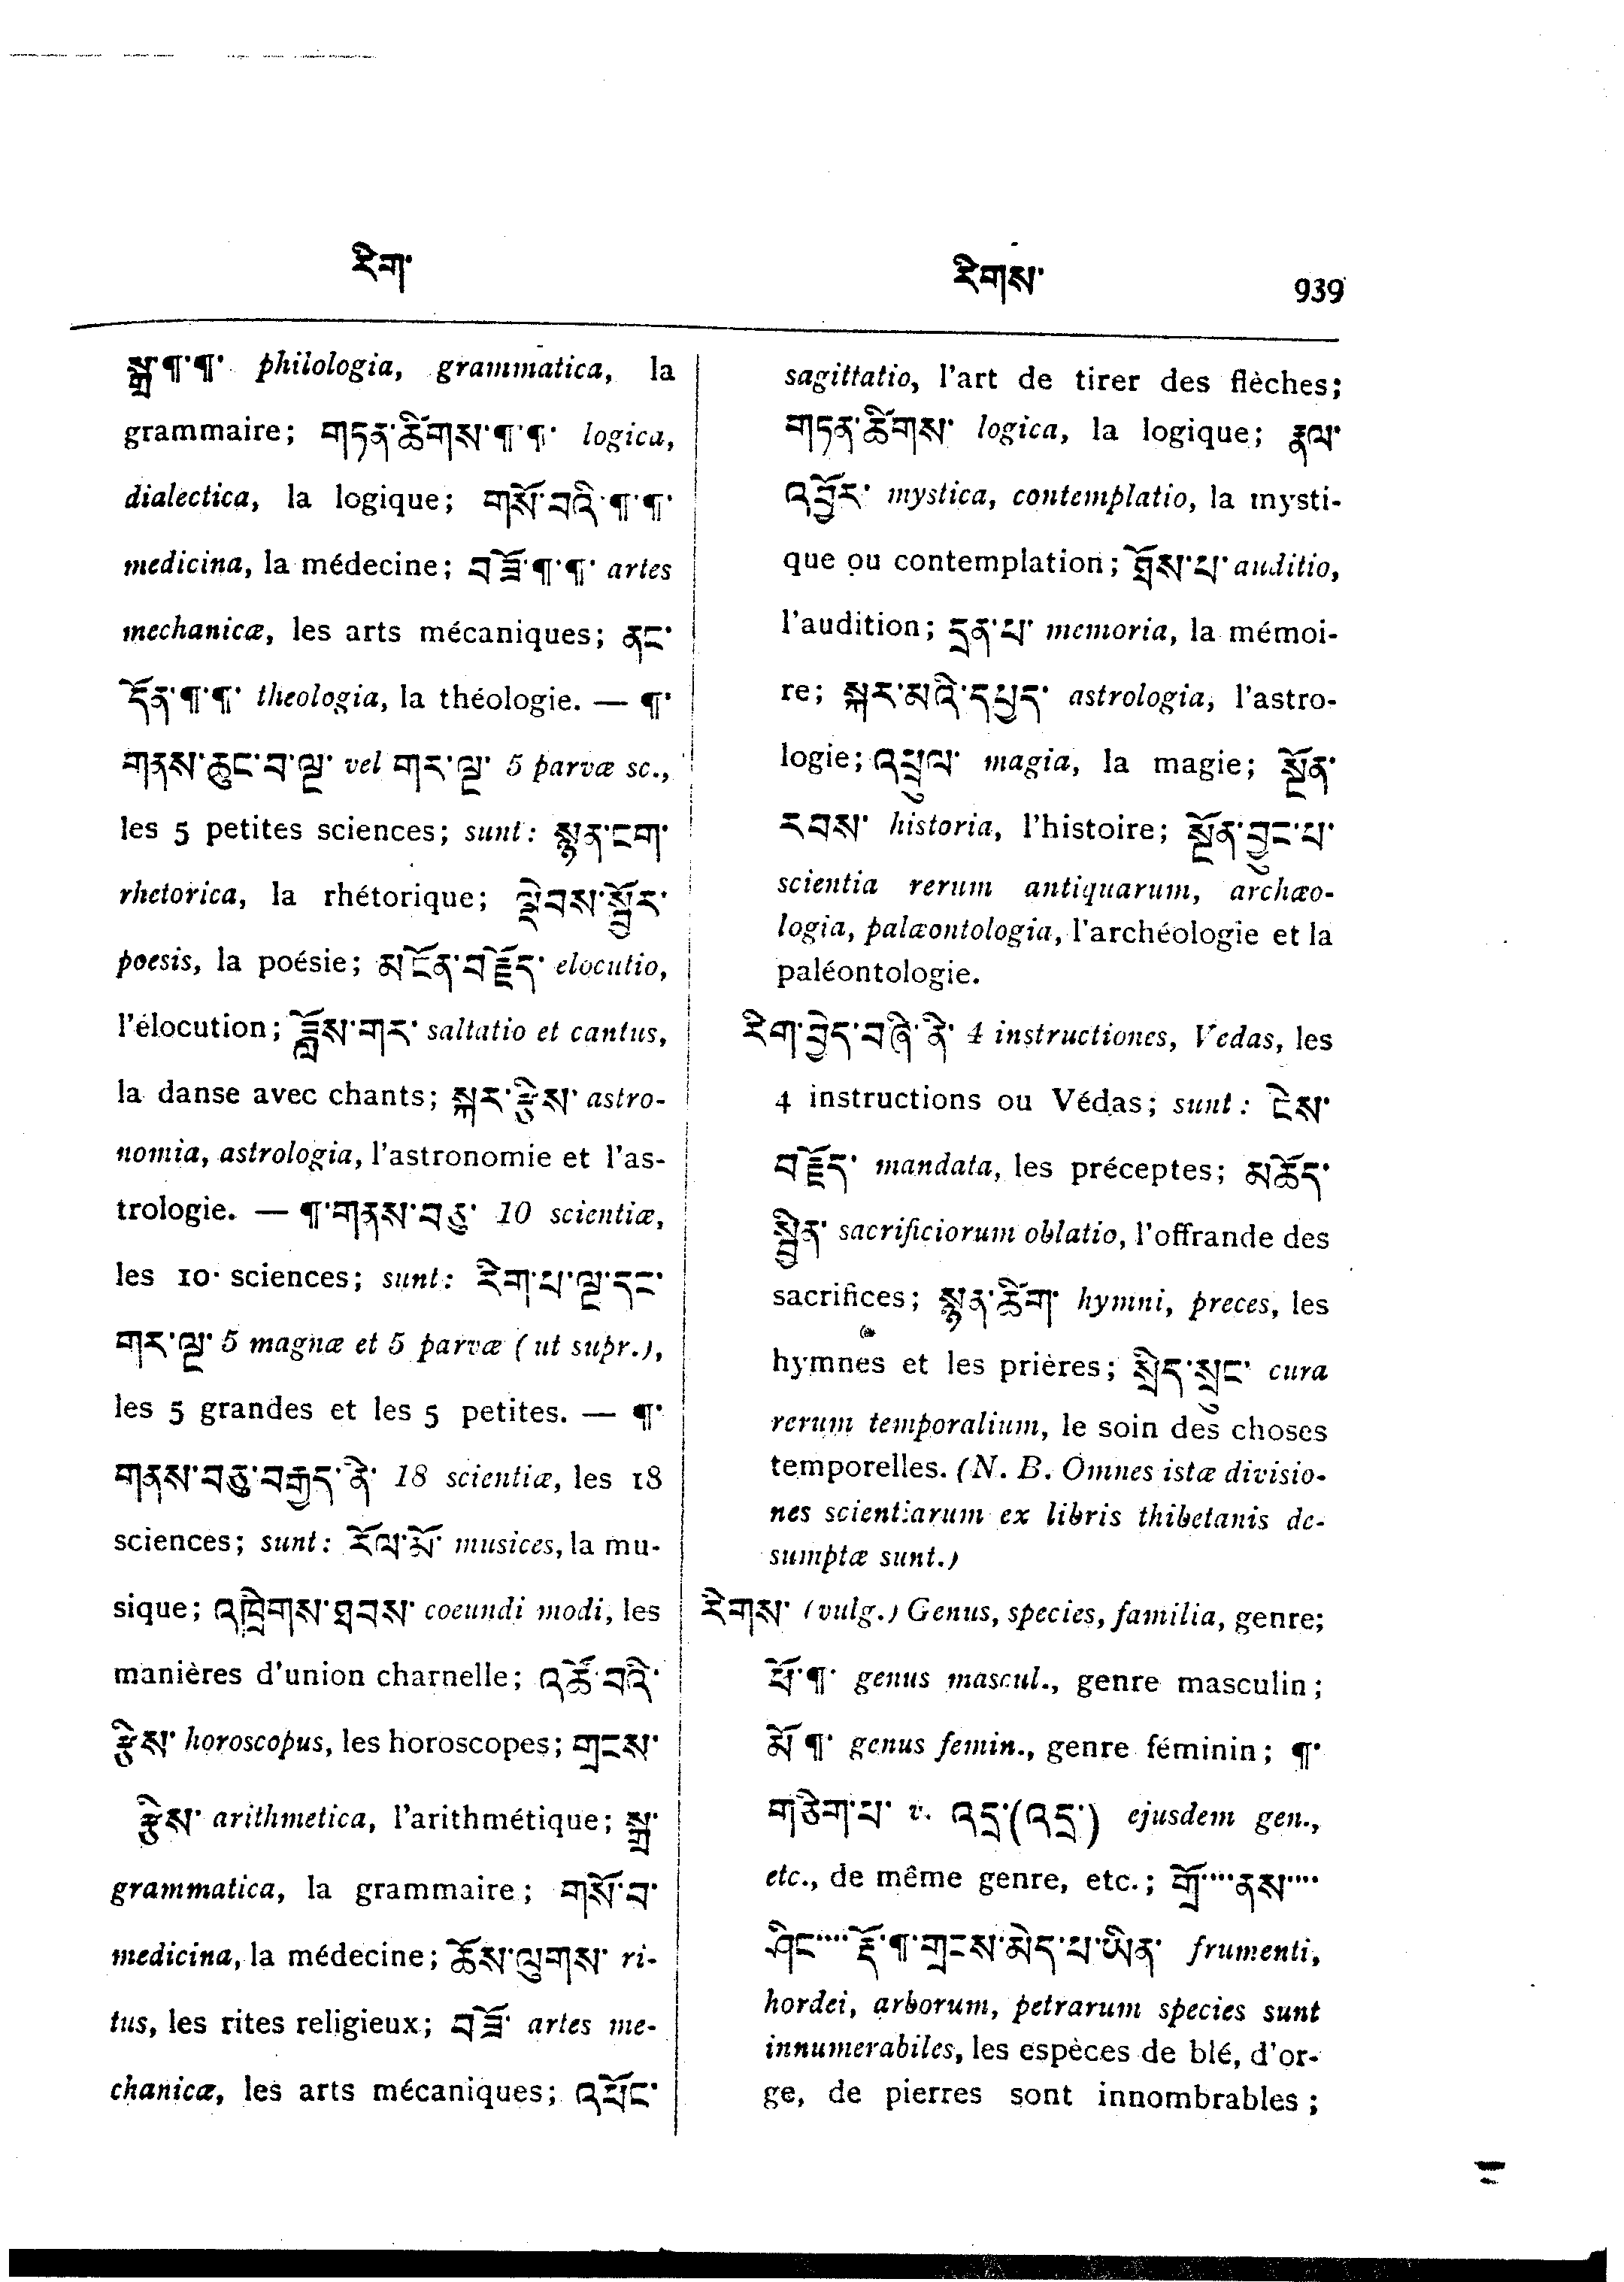 རིག་
རིགས་ 939
སྒྲ་¶་¶་ philologia, grammatica, la
grammaire; གཏན་ཚིགས་¶་¶་ logica,
dialectica, la logique; གསོ་བའི་¶་¶་
medicina, la médecine; བཟོ་¶་¶་ artes
mechanicæ, les arts mécaniques; ནང་
དོན་¶་¶་ theologia, la théologie. — ¶་
གནས་ཆུང་བ་ལྔ་ vel གར་ལྔ་ 5 parvæ sc.,
les 5 petites sciences; sunt: སྙན་ངག་
rhetorica, la rhétorique; ལྡེབས་སྦྱོར་
poesis, la poésie; མངོན་བརྗོད་ elocutio,
l'élocution; ཟློས་གར་ saltatio et cantus,
la danse avec chants; སྐར་རྩིས་ astro-
nomia, astrologia, l'astronomie et l'as-
trologie. — ¶་གནས་བཅུ་ 10 scientiæ,
les 10 sciences; sunt: རིག་པ་ལྔ་དང་
གར་ལྔ་ 5 magnæ et 5 parvæ (ut supr.),
les 5 grandes et les 5 petites. — ¶་
གནས་བཅུ་བརྒྱད་ནི་ 18 scientiæ, les 18
sciences; sunt: རོལ་མོ་ musices, la mu-
sique; འཁྲིགས་ཐབས་ coeundi modi, les
manières d'union charnelle; འཚོ་བའི་
རྩིས་ horoscopus, les horoscopes; གྲངས་
རྩིས་ arithmetica, l'arithmétique; སྒྲ་
grammatica, la grammaire; གསོ་བ་
medicina, la médecine; ཆོས་ལུགས་ ri-
tus, les rites religieux; བཟོ་ artes me-
chanicæ, les arts mécaniques; འཕོང་
sagittatio, l'art de tirer des flèches;
གཏན་ཚིགས་ logica, la logique; རྣལ་
འབྱོར་ mystica, contemplatio, la mysti-
que ou contemplation; ཐོས་པ་ auditio,
l'audition; དྲན་པ་ memoria, la mémoi-
re; སྐར་མའི་དཔྱད་ astrologia, l'astro-
logie; འཕྲུལ་ magia, la magie; སྔོན་
རབས་ historia, l'histoire; སྔོན་བྱུང་པ་
scientia rerum antiquarum, archæo-
logia, palæontologia, l'archéologie et la
paléontologie.
རིག་བྱེད་བཞི་ནི་ 4 instructiones, Vedas, les
4 instructions ou Védas; sunt: ངེས་
བརྗོད་ mandata, les préceptes; མཆོད་
སྦྱིན་ sacrificiorum oblatio, l'offrande des
sacrifices; སྙན་ཚིག་ hymni, preces, les
hymnes et les prières; སྲིད་སྲུང་ cura
rerum temporalium, le soin des choses
temporelles. (N. B. Omnes istæ divisio-
nes scientiarum ex libris thibetanis de-
sumptæ sunt.)
རིགས་ (vulg.) Genus, species, familia, genre;
ཕོ་¶་ genus mascul., genre masculin;
མོ་¶་ genus femin., genre féminin; ¶་
གཅིག་པ་ v. འདྲ་(འདྲ་) ejusdem gen.,
etc., de même genre, etc.; གྲོ་....ནས་....
ཤིང་....རྡོ་¶་གྲངས་མེད་པ་ཡིན་ frumenti,
hordei, arborum, petrarum species sunt
innumerabiles, les espèces de blé, d'or-
ge, de pierres sont innombrables;